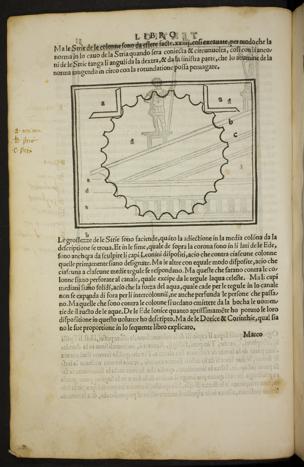 LIBRO
Ma le Strie de le colonne sono da essere facte .xxiiij. cosi excavate, per modo che la
norma in lo cavo de la Stria quando sera coniecta & circunvoluta, cosi con li anco-
ni de le Strie tanga li anguli da la dextra, & da la sinistra parte, che lo acumine de la
norma tangendo in circo con la rotundatione possa pervagare.
a
a
d
b
c
b
Le grossezze de le Strie sono faciende, quãto la adiectione in la media colũna da la
descriptione se trova. Et in le sime, quale de sopra la corona sono in li lati de le Ede,
sono anchora da sculpire li capi Leonini disposti, acio che contra ciascune colonne
quelle primamente siano designate. Ma le altre con equale modo disposite, acio che
ciascuna a ciascune medie tegule se respondano. Ma quelle che sarano contra le co-
lonne siano perforate al canale, quale excipe da le tegule laqua celeste. Ma li capi
mediani siano solidi, acio che la forza del aqua, quale cade per le tegule in lo canale
non se expanda di fora per li intercolonnii, ne anche perfunda le persone che passa-
no. Ma quelle che sono contra le colonne si vedano emittere da la bocha le vomi-
tie del ructo de le aque. De le Ede Ionice quanto aptissimamẽte ho potuto le loro
dispositione in questo volume ho descripto. Ma de le Dorice & Corinthie, qual sia
no le sue proportione in lo sequente libro explicato.
Marco